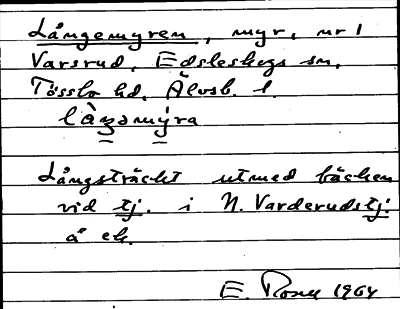 Långemyren, myr, nr 1
Varsrud, Edsleskogs sn,
Tössbo hd, Älvsb. l.
làŋəmy̋ra
Långsträckt utmed bäcken
vid tj. i N. Varderudstj.
å ek.
E. Rosell 1964